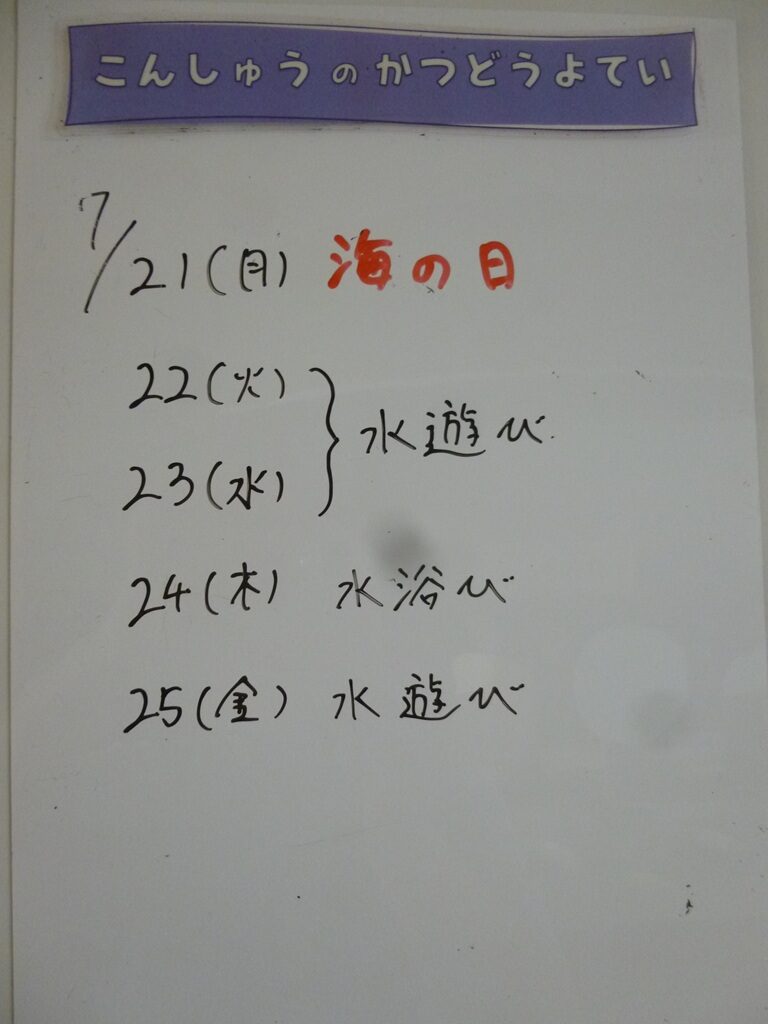 こんしゅうのかつどうよてい
7/21(月) 海の日
22(火)
23(水) } 水遊び
24(木) 水浴び
25(金) 水遊び